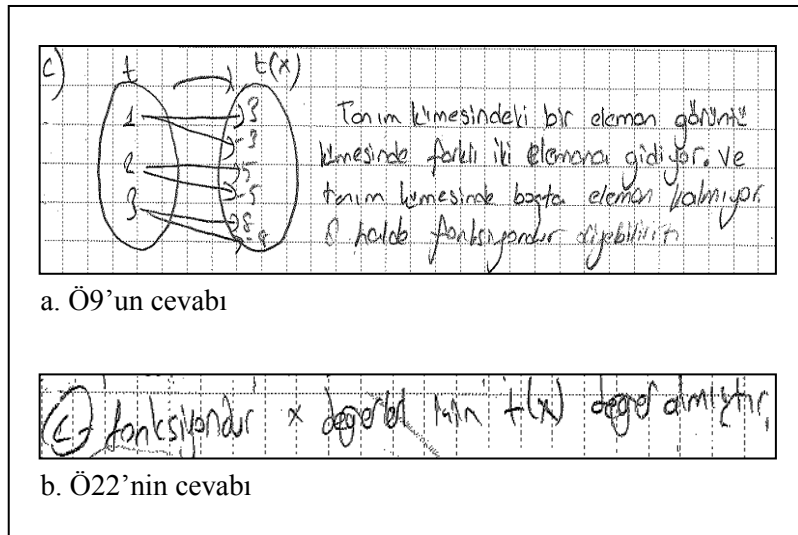 c) t t(x)
1 3
-3 Tanım kümesindeki bir eleman görüntü
2 5 kümesinde farklı iki elemana gidiyor. Ve
-5 tanım kümesinde boşta eleman kalmıyor.
3 8 O halde fonksiyondur diyebiliriz
-8
a. Ö9’un cevabı
c- fonksiyondur x değerleri için t(x) değer almıştır.
b. Ö22’nin cevabı